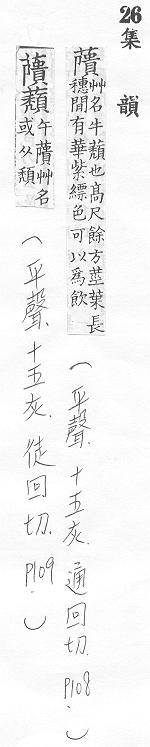 26
集韻
藬艸名牛蘈也高尺餘方莖葉長
穗閒有華紫縹色可以爲飲
(平聲.十五灰.通回切.P108.)
藬蘈牛藬艸名
或从頹
(平聲.十五灰.徒回切.P109.)